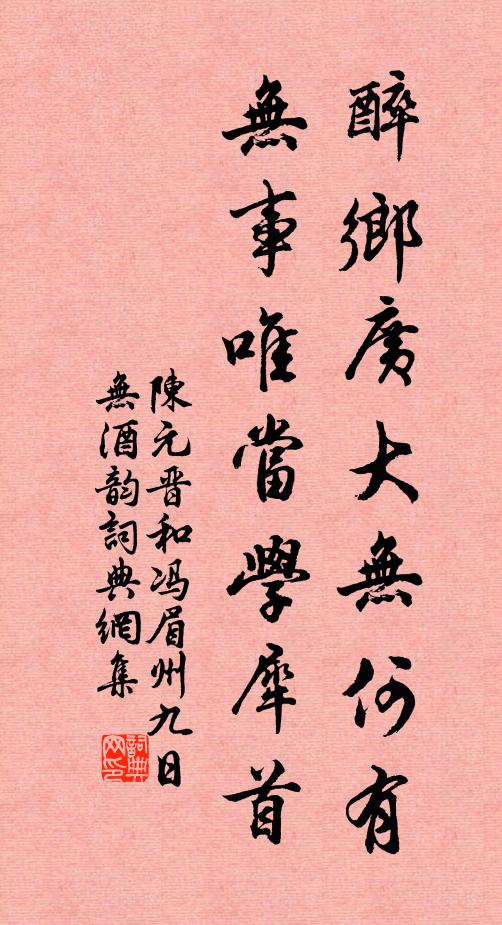 醉鄉廣大無何有
無事唯當學犀首
陳元晋和冯眉州九日
無酒韵詞典網集
詞典
网印